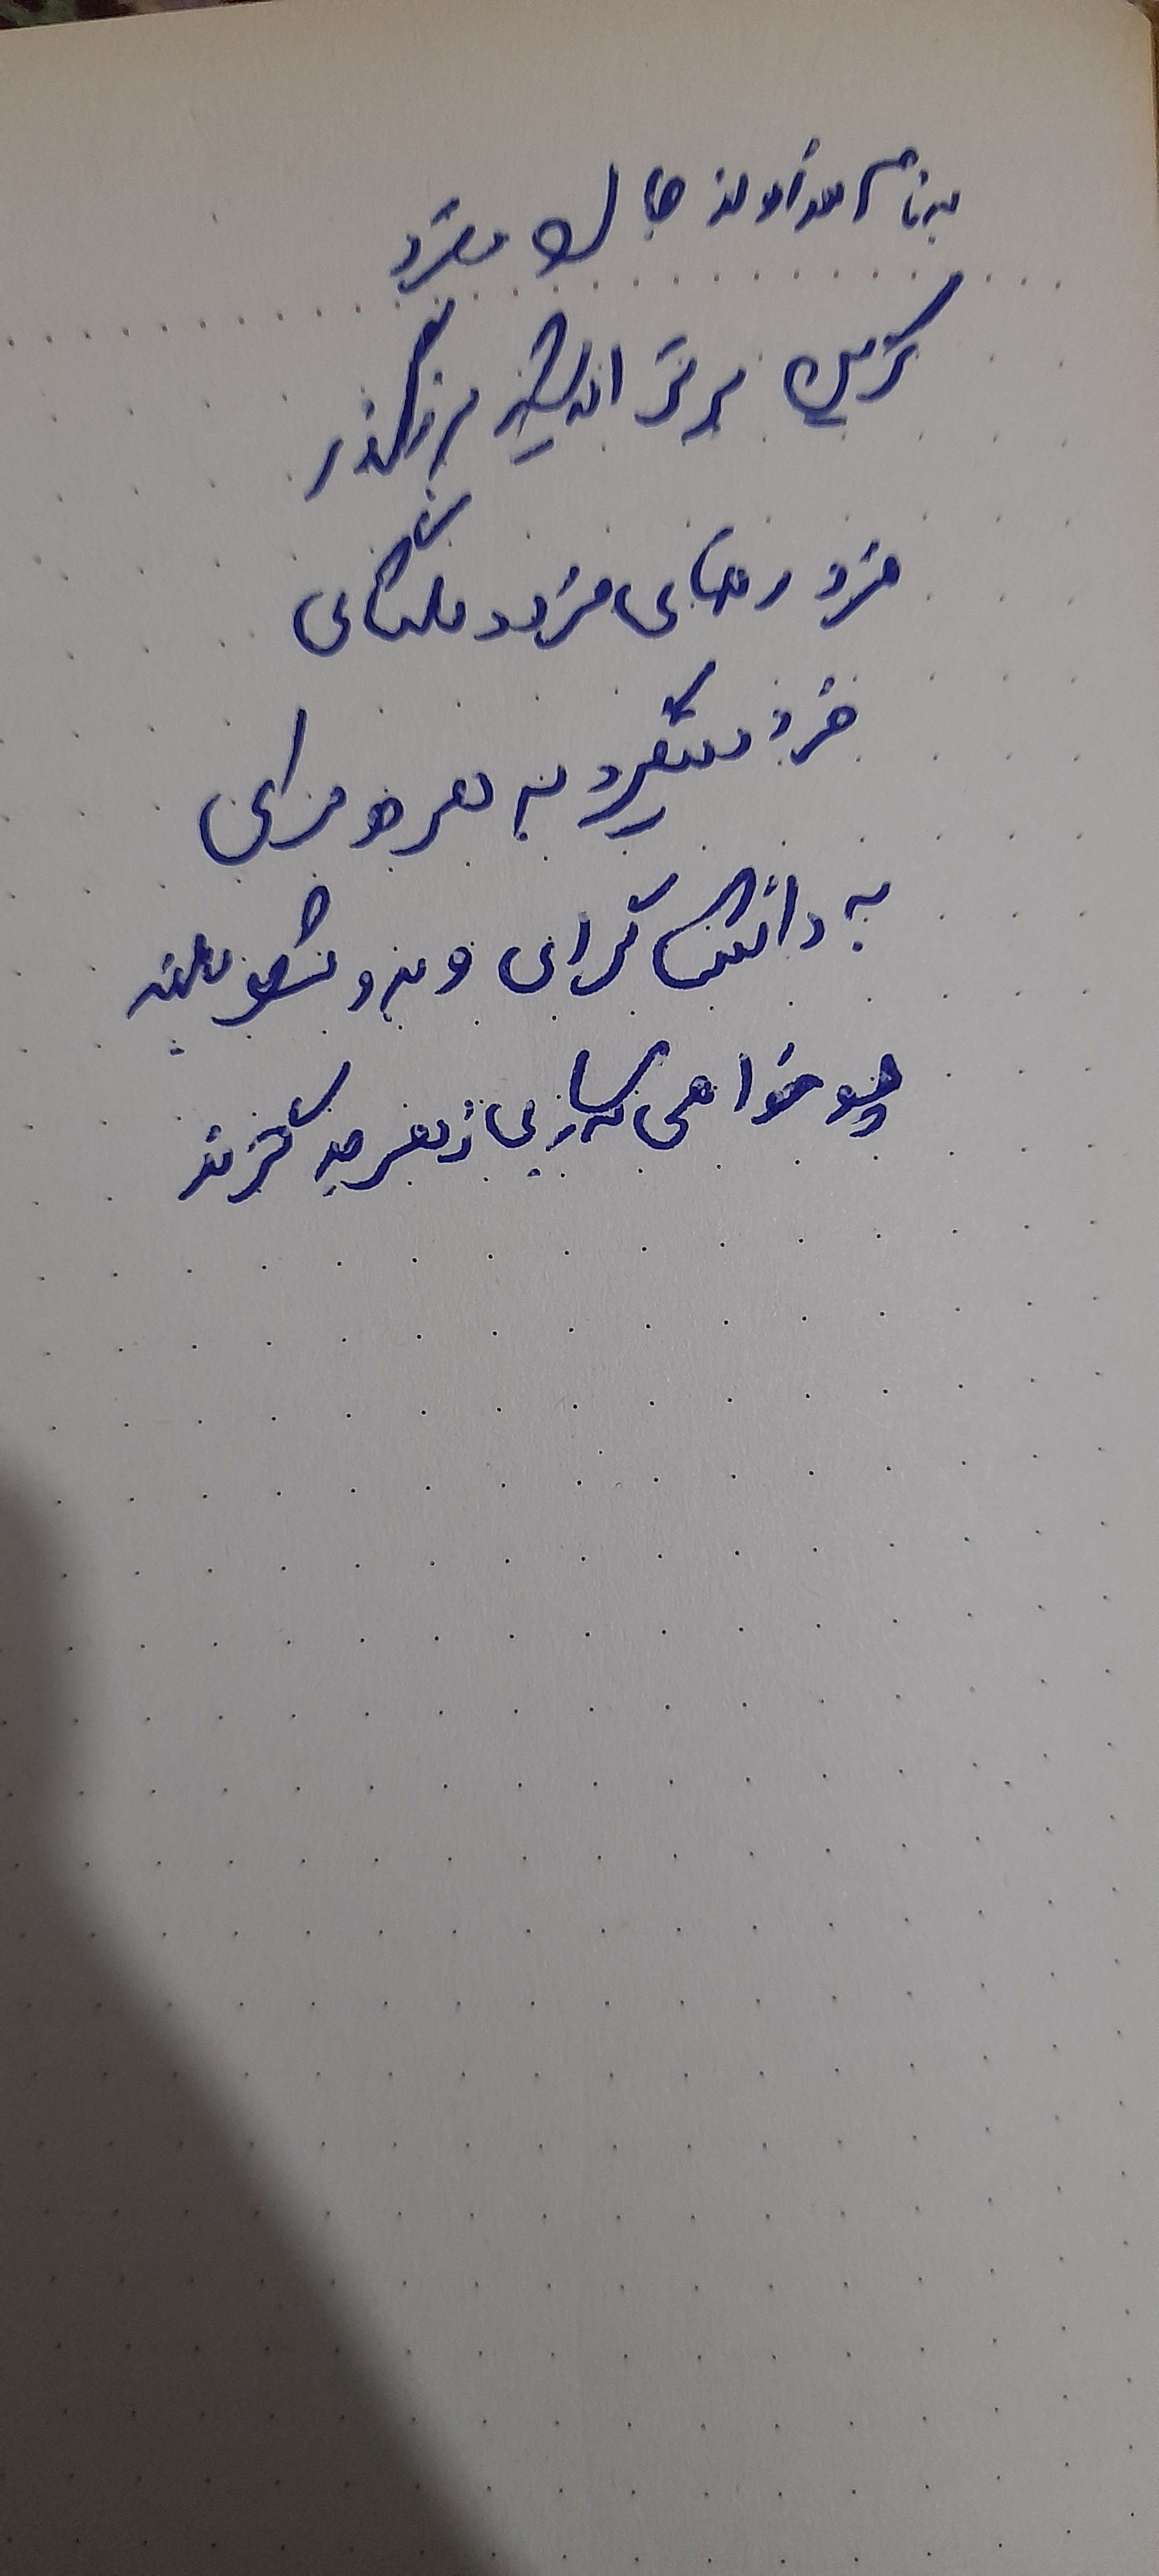 به نام خداوند جان و خرد
کزین برتر اندیشه برنگذرد
خرد رهنمای خرد دلگشای
خرد دستگیرد به هر دو سرای
به دانش گرای و بدو شو بلند
چو خواهی که یابی ز هر بد گزند